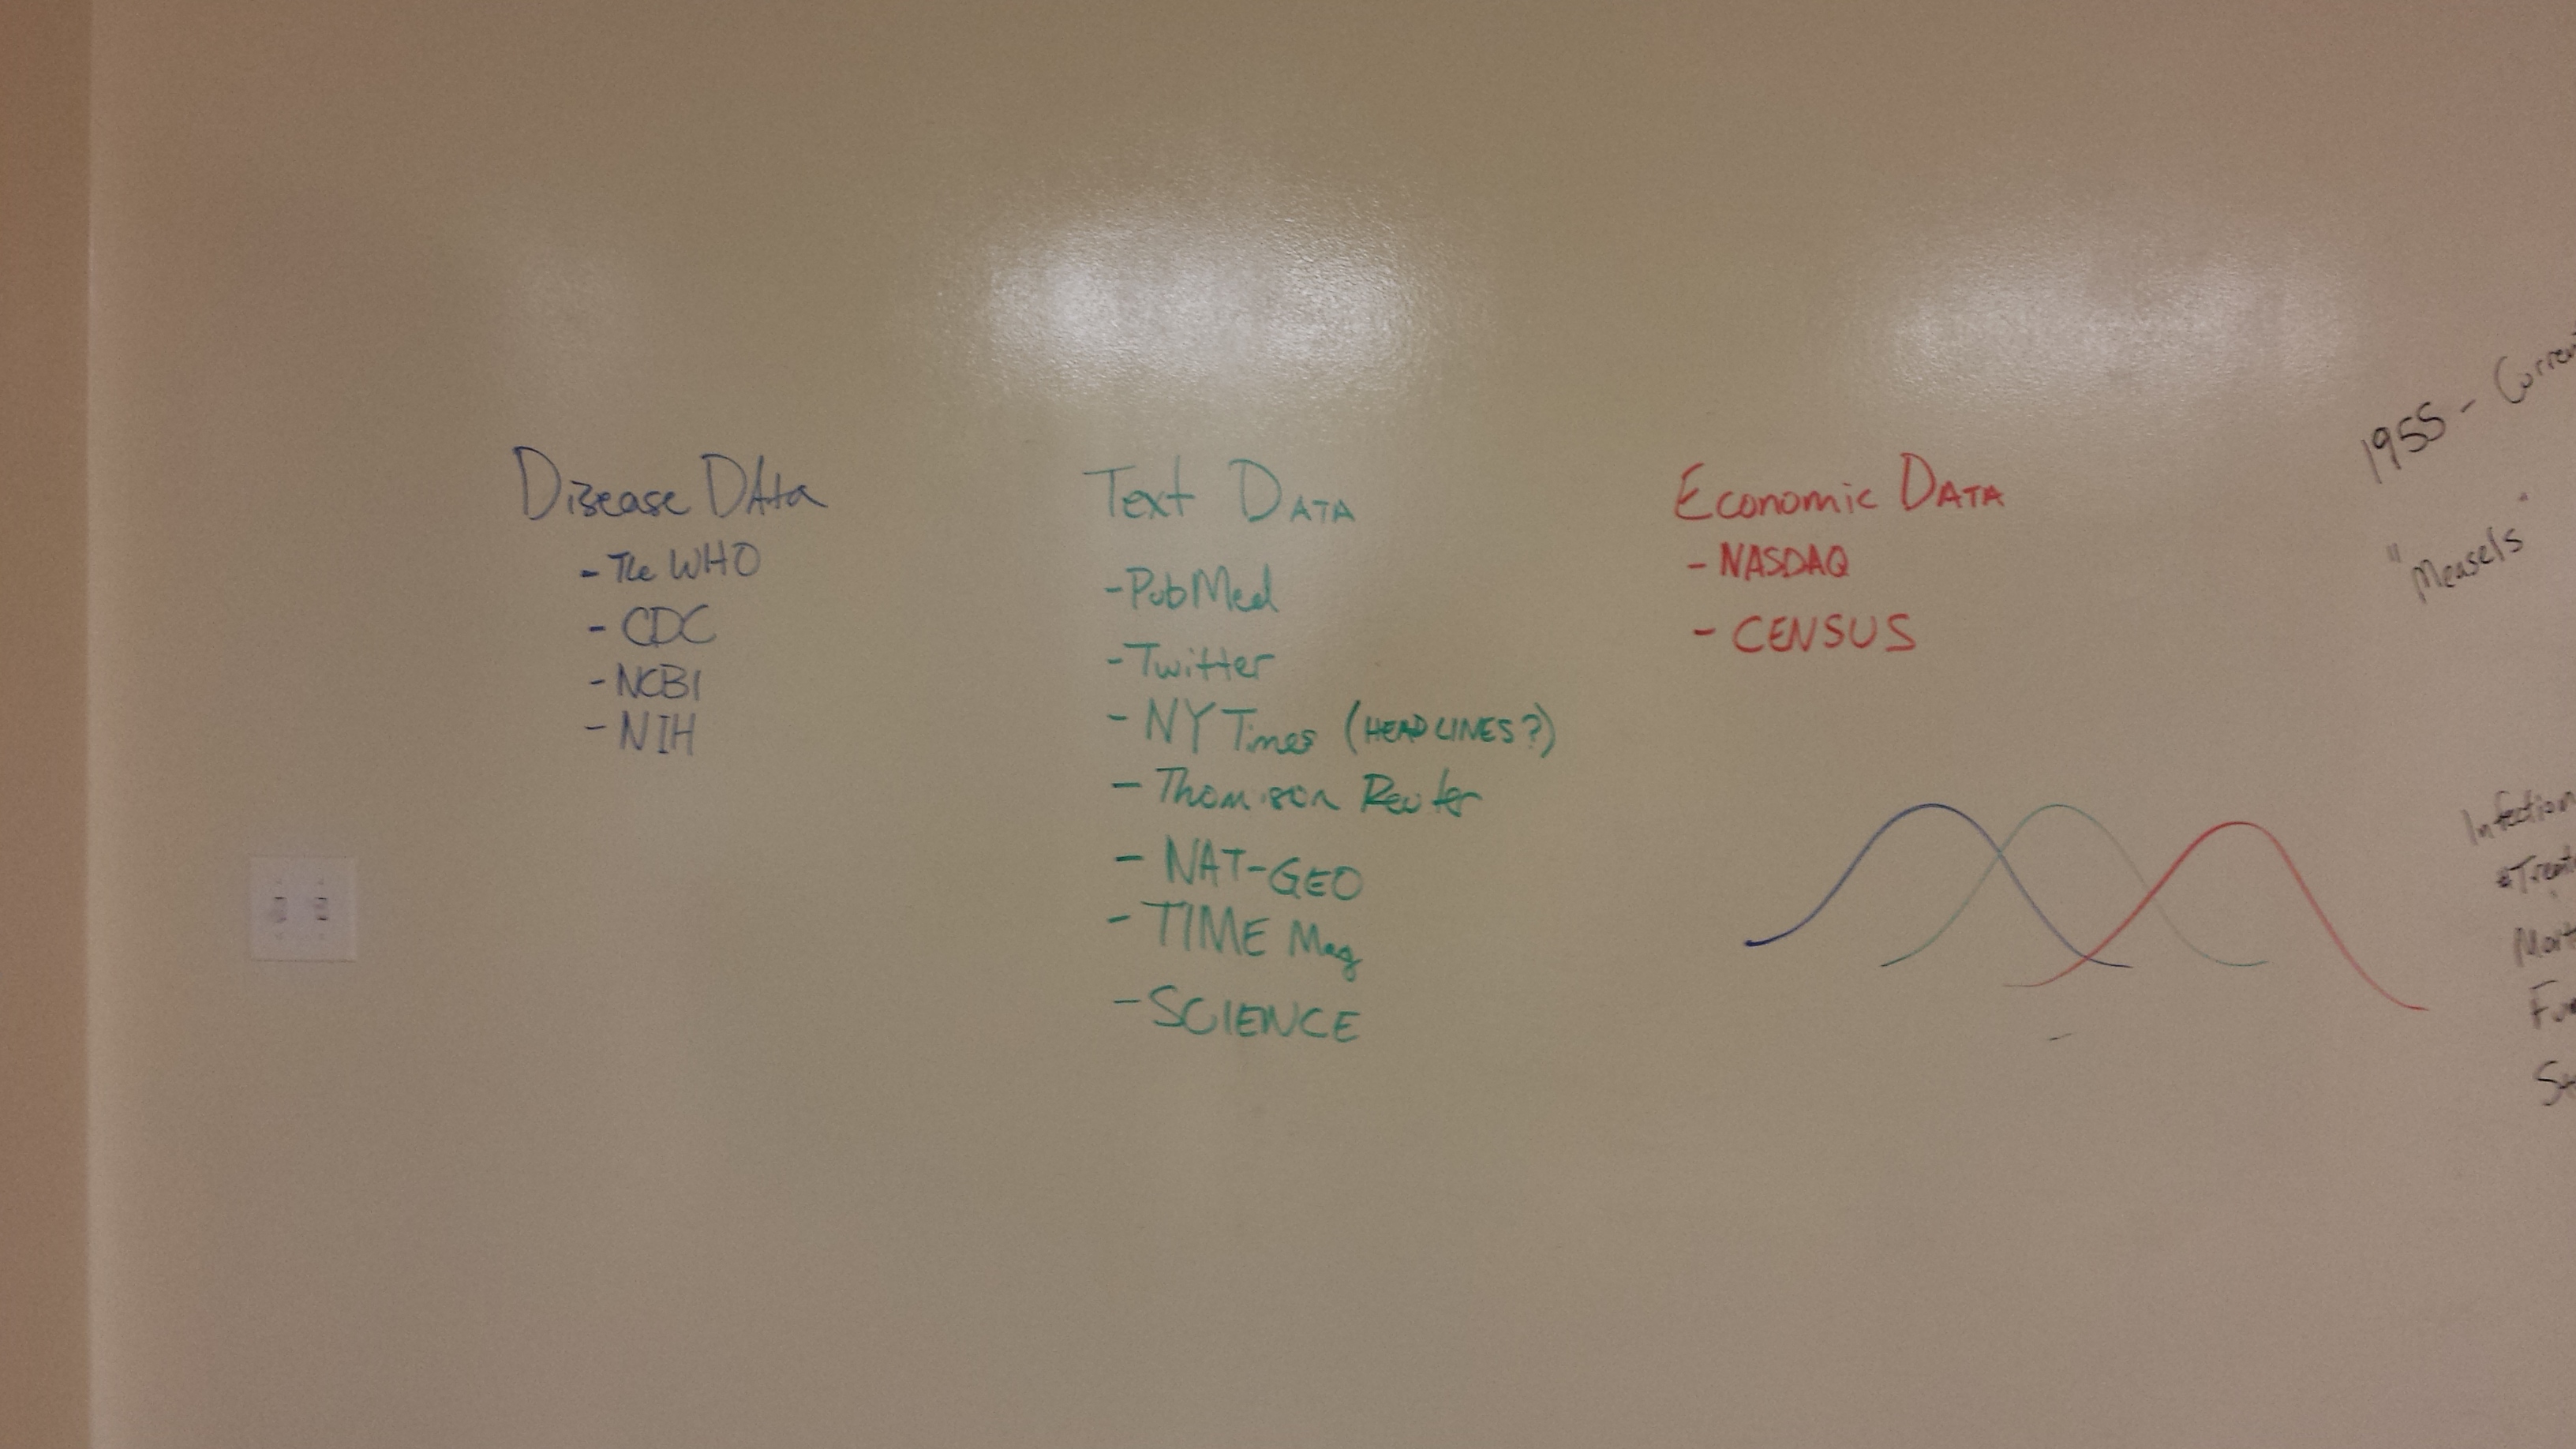 Disease DAta
- The WHO
- CDC
- NCBI
- NIH
Text DATA
- PubMed
- Twitter
- NY Times (HEADLINES?)
- Thomison Reuter
- NAT-GEO
- TIME Mag
- SCIENCE
Economic DATA
- NASDAQ
- CENSUS
1955 - Curren
"Measels"
Infection